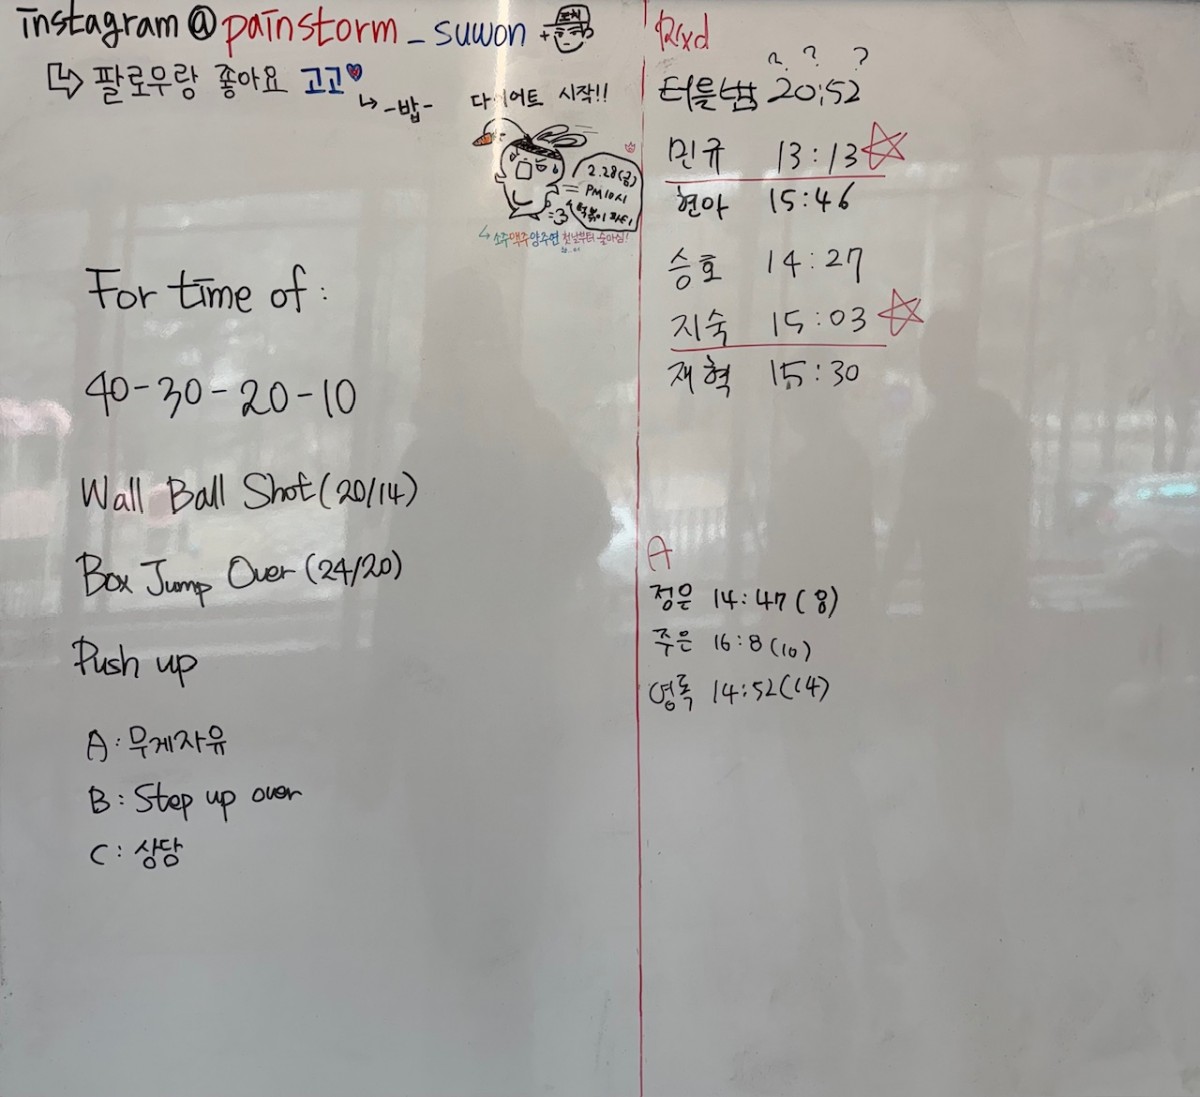 instagram @ painstorm _ suwon +
팔로우랑 좋아요 고고
-밥-
다이어트 시작!!
2.28(금)
PM10시
떡볶이 파티
소주맥주양주연 첫날부터 술마심!
For time of :
40-30-20-10
Wall Ball Shot (20/14)
Box Jump Over (24/20)
Push up
A : 무게자유
B : Step up over
C : 상담
Rxd
? ? ?
터틀냄 20:52
민규 13:13
현아 15:46
승호 14:27
지숙 15:03
재혁 15:30
A
정은 14:47 (8)
주은 16:8 (10)
영록 14:52 (14)